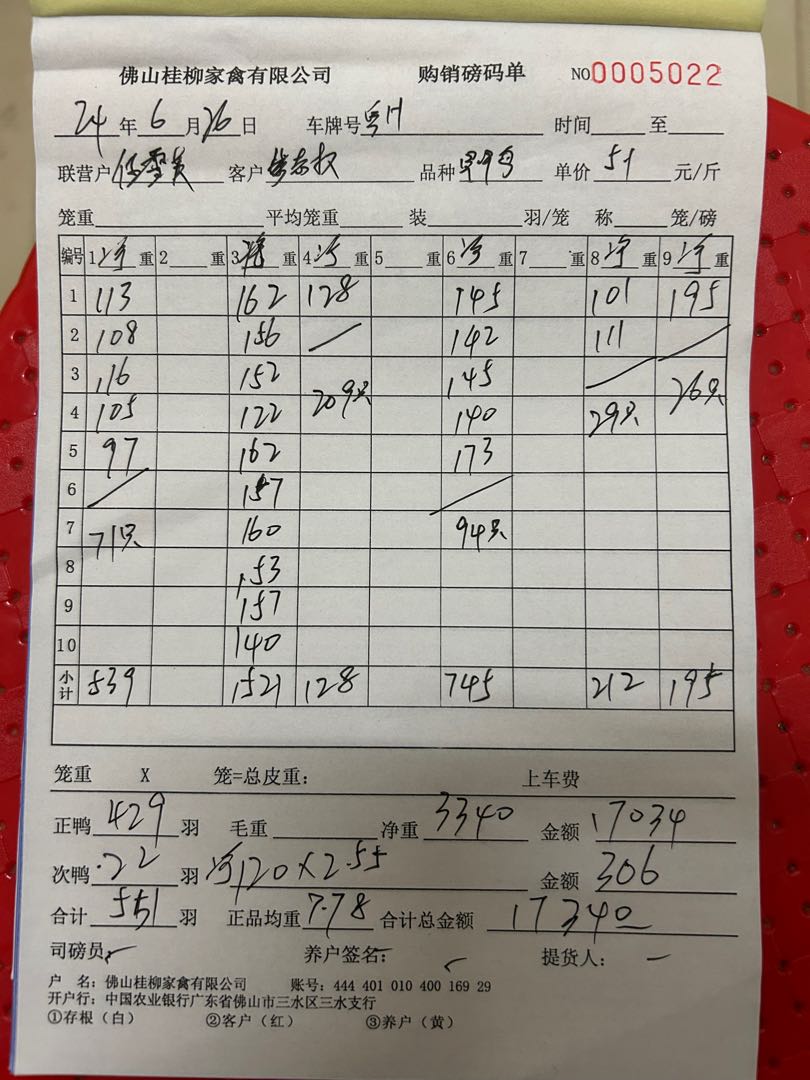 佛山桂柳家禽有限公司 购销磅码单 NO0005022
24年6月26日 车牌号粤H 时间 至
联营户 客户 品种 单价51元/斤
笼重 平均笼重 装 羽/笼 称 笼/磅
编号 1净重 2 重 3净重 4净重 5 重 6净重 7 重 8净重 9净重
1 113 162 128 145 101 195
2 108 156 / 142 111 /
3 116 152 145 /
4 105 122 209只 140 29只 26只
5 97 162 173
6 / 157 /
7 71只 160 94只
8 153
9 157
10 140
小计 539 1521 128 745 212 195
笼重 X 笼=总皮重: 上车费
正鸭429羽 毛重 净重3340 金额17034
次鸭22羽 净120X2.55 金额306
合计551羽 正品均重7.78 合计总金额17340
司磅员: 养户签名: 提货人:
户 名:佛山桂柳家禽有限公司 账号:444 401 010 400 169 29
开户行:中国农业银行广东省佛山市三水区三水支行
①存根(白) ②客户(红) ③养户(黄)